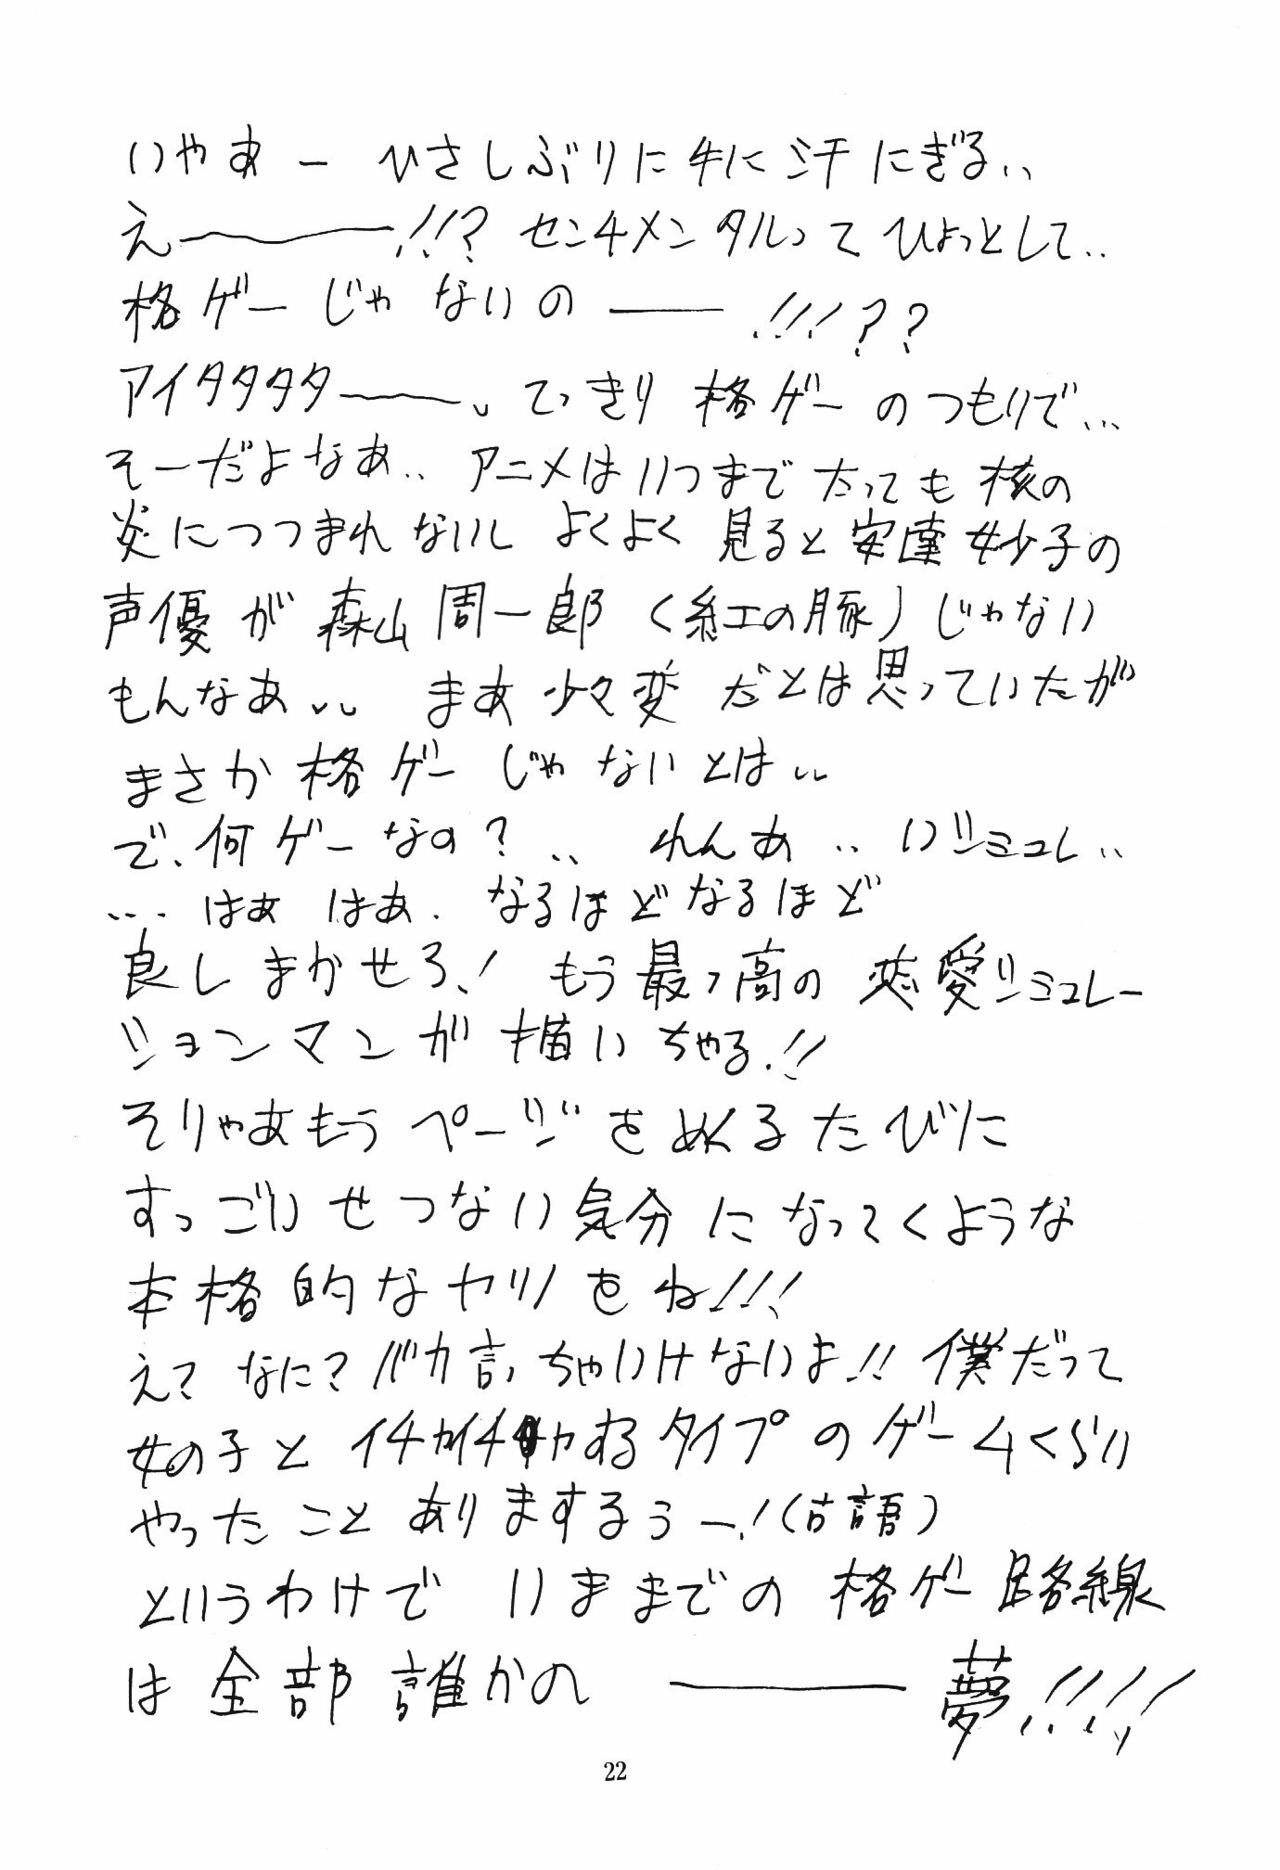 いやあー ひさしぶりに手に汗にぎる‥
え〜〜〜!!? センチメンタルってひょっとして‥
格ゲーじゃないの――!!!??
アイタタタタ〜〜、てっきり格ゲーのつもりで…
そーだよなあ‥ アニメはいつまでたっても核の
炎につつまれないし よくよく見ると安達妙子の
声優が森山周一郎(紅の豚)じゃない
もんなあ‥ まあ少々変だとは思っていたが
まさか格ゲーじゃないとは‥
で、何ゲーなの?‥ れんあ‥いシミュレ‥
…はぁ はあ. なるほどなるほど
良しまかせろ! もう最っ高の恋愛シミュレー
ションマンガ描いちゃる!!
そりゃあもうページをめくるたびに
すっごいせつない気分になってくような
本格的なヤツをね!!!
え?なに?バカ言っちゃいけないよ!! 僕だって
女の子とイチャイチャするタイプのゲームくらい
やったことありまするぅー!(古語)
というわけで いままでの格ゲー路線
は全部誰かの ――夢!!!!
22